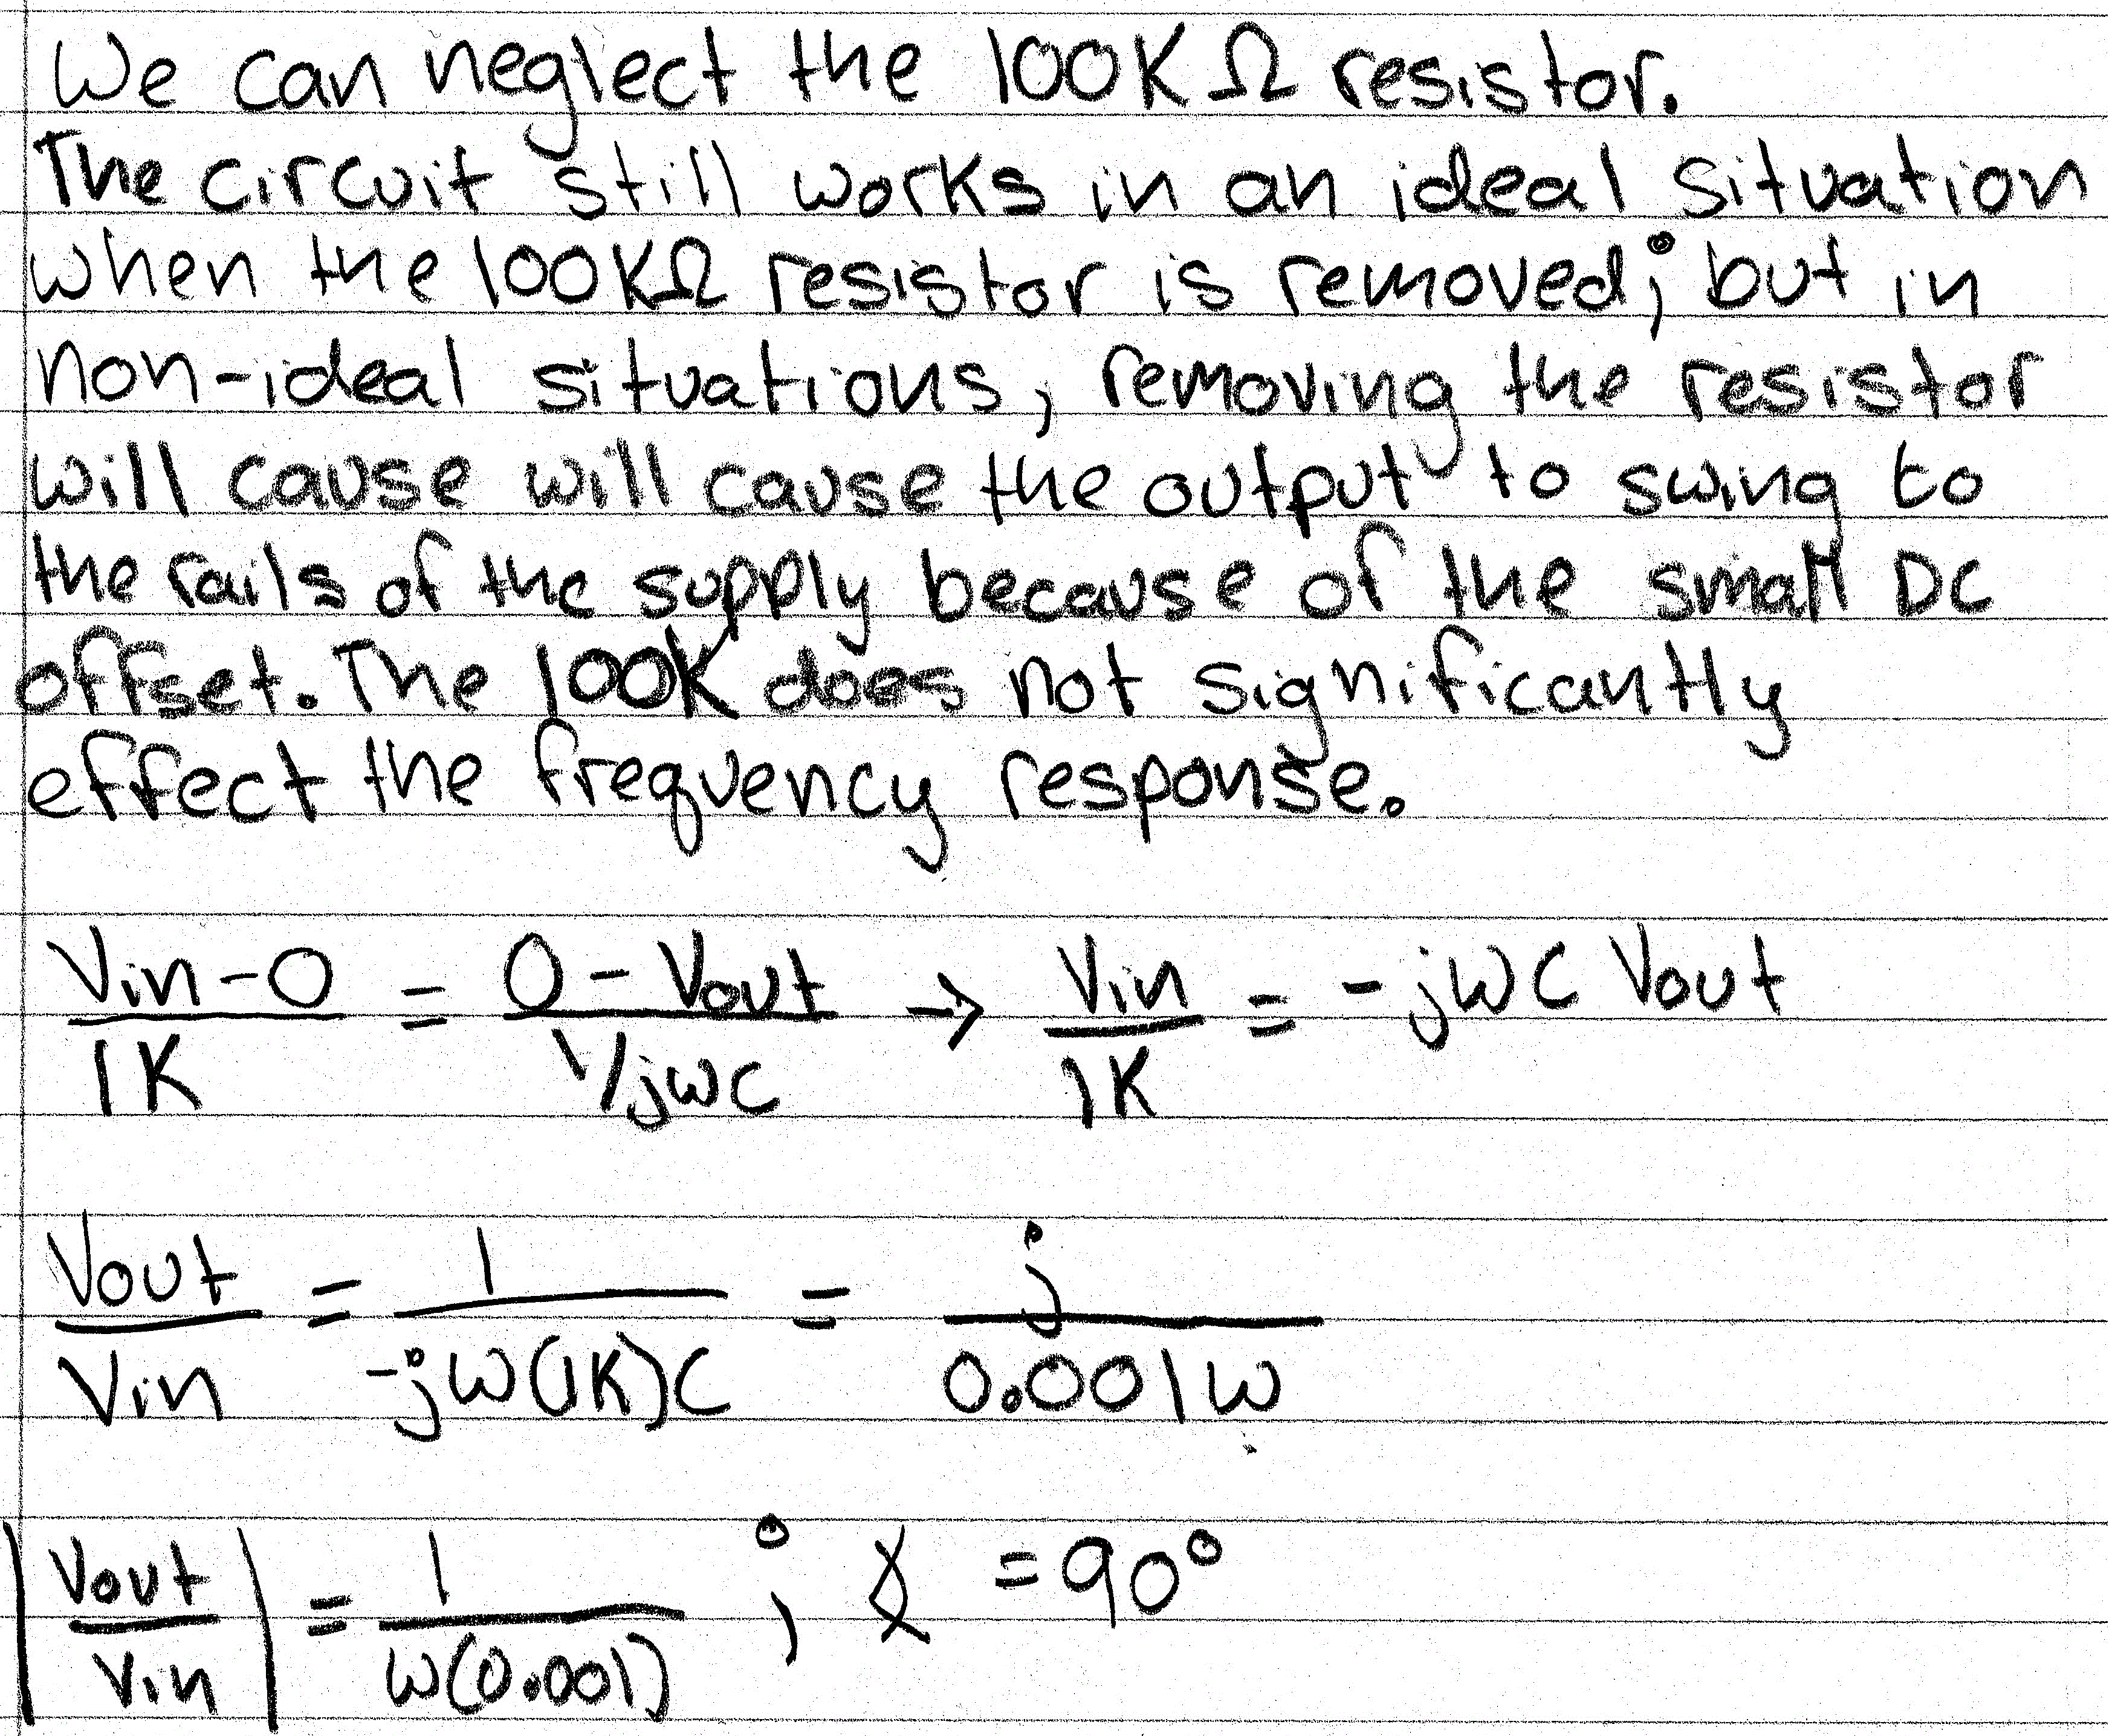 We can neglect the 100KΩ resistor.
The circuit still works in an ideal situation
when the 100KΩ resistor is removed; but in
non-ideal situations, removing the resistor
will cause will cause the output to swing to
the rails of the supply because of the small DC
offset. The 100K does not significantly
effect the frequency response.
(Vin - 0)/1K = (0 - Vout)/(1/jωC) → Vin/1K = -jωC Vout
Vout/Vin = 1/(-jω(1K)C) = j/(0.001ω)
|Vout/Vin| = 1/(ω(0.001)) ; ∡ = 90°